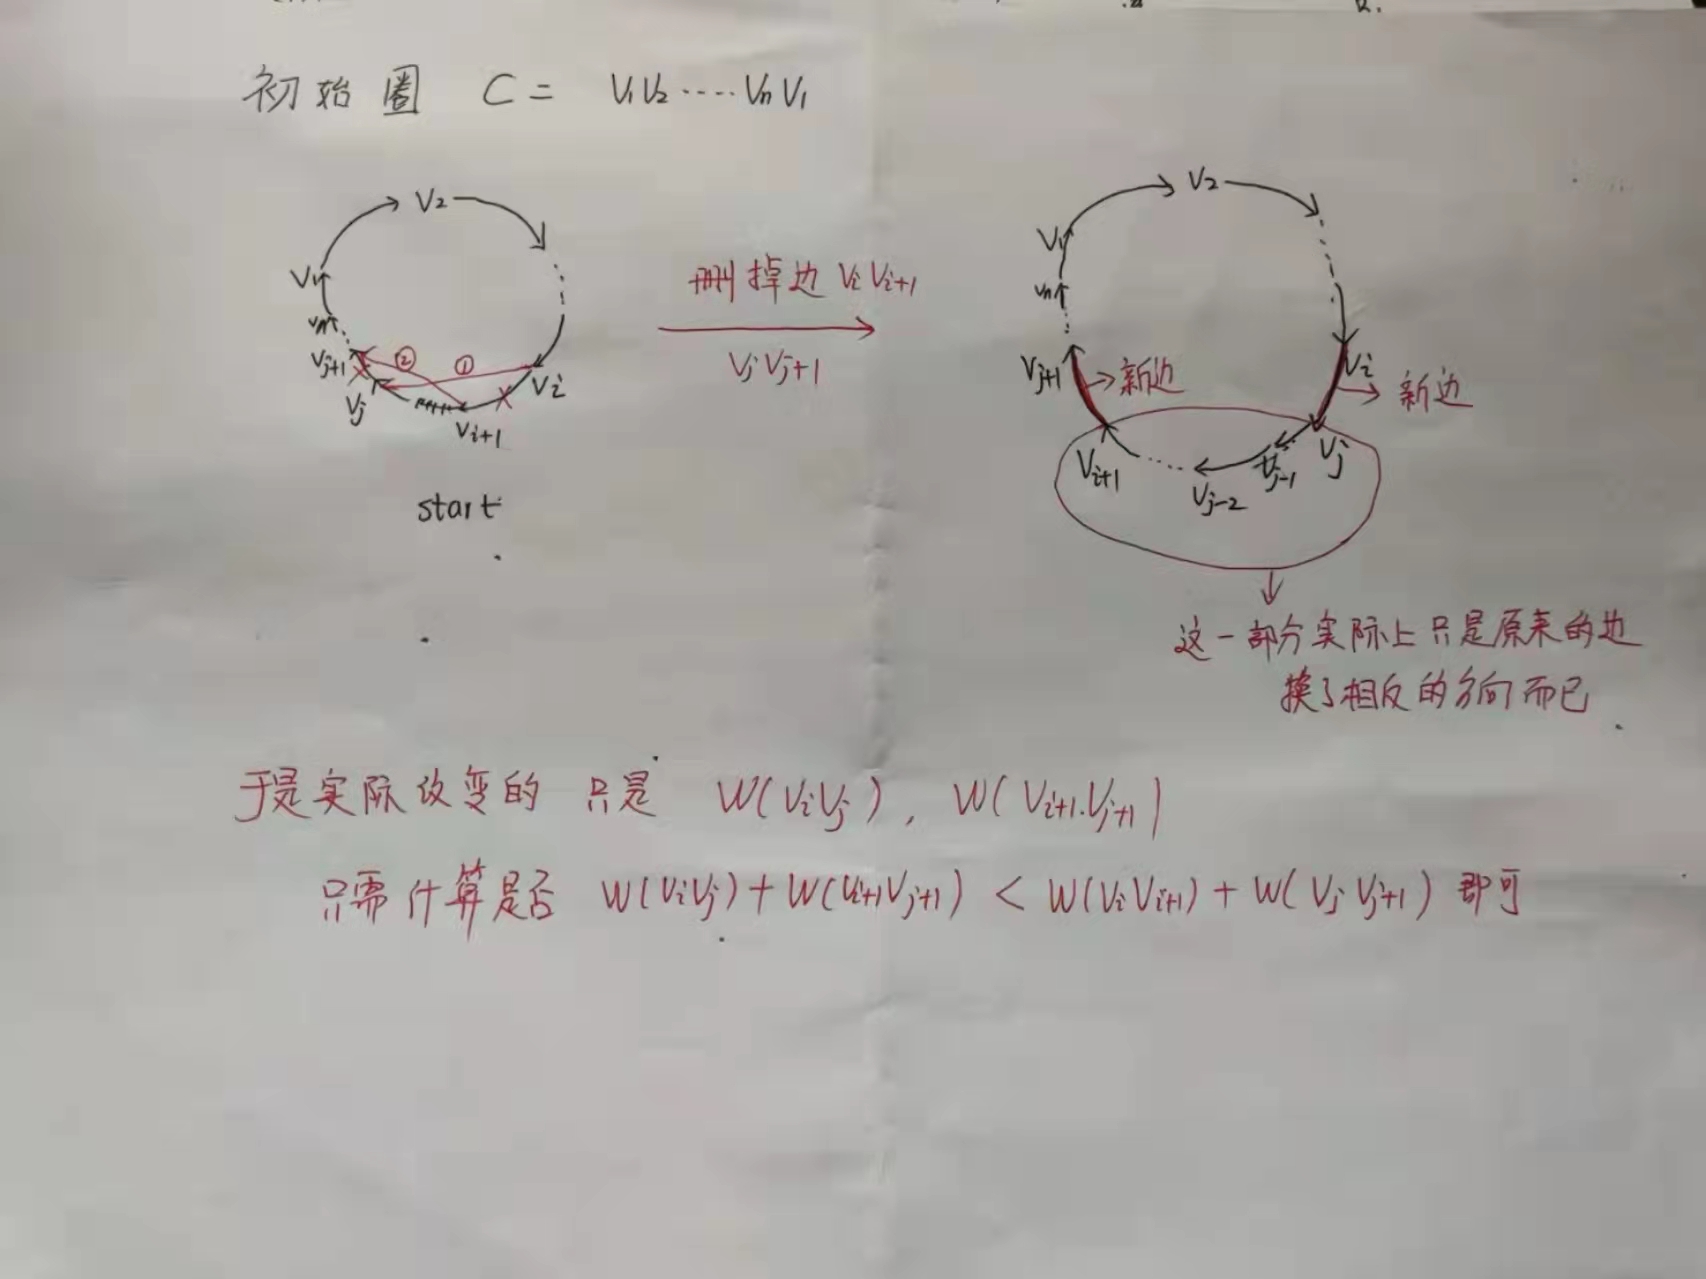 初始圈 C = V1V2‥‥VnV1
V2
V1
Vn
Vj+1
②
①
Vj
Vi
Vi+1
start
删掉边 ViVi+1
VjVj+1
V2
V1
Vn
Vj+1
新边
Vi
新边
Vi+1
Vj-2
Vj-1
Vj
这一部分实际上只是原来的边
换了相反的方向而已
于是实际改变的 只是 W(ViVj), W(Vi+1.Vj+1)
只需计算是否 W(ViVj)+W(Vi+1Vj+1) < W(ViVi+1)+W(VjVj+1) 即可